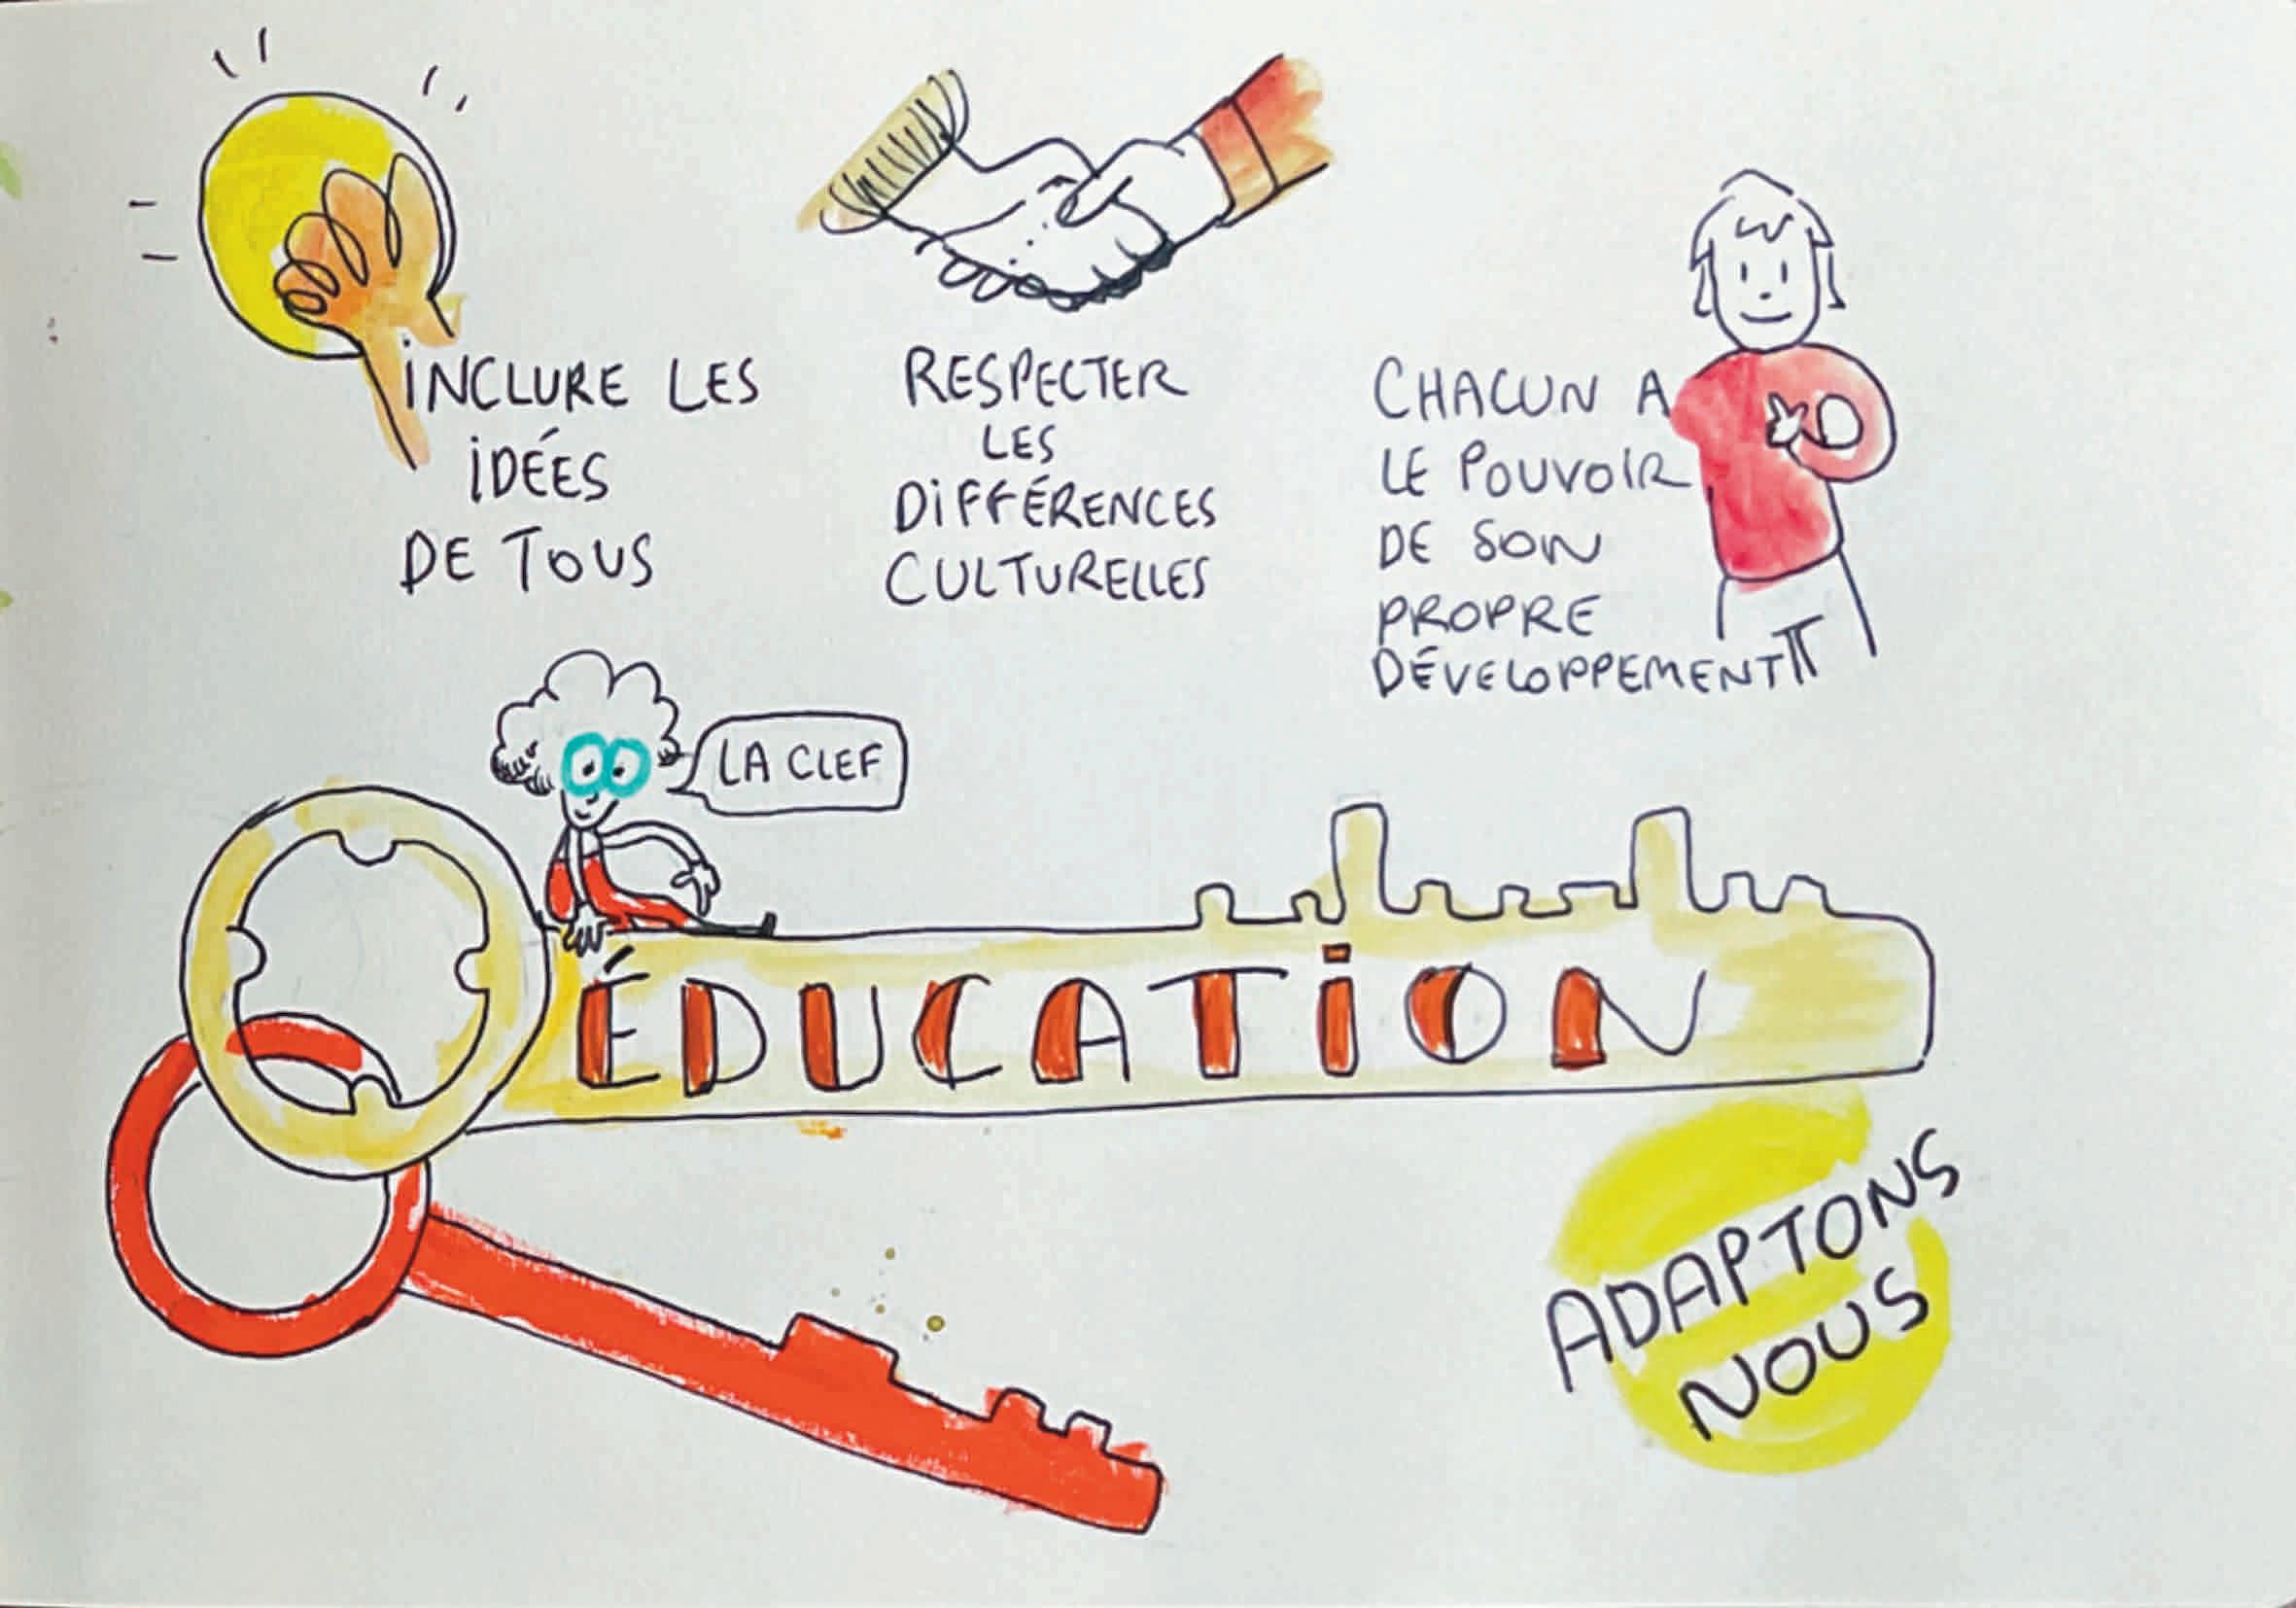 iNCLURE LES
iDÉES
DE TOUS
RESPECTER
LES
DiFFÉRENCES
CULTURELLES
CHACUN A
LE POUVOIR
DE SON
PROPRE
DÉVELOPPEMENT
LA CLEF
ÉDUCATiON
ADAPTONS
NOUS